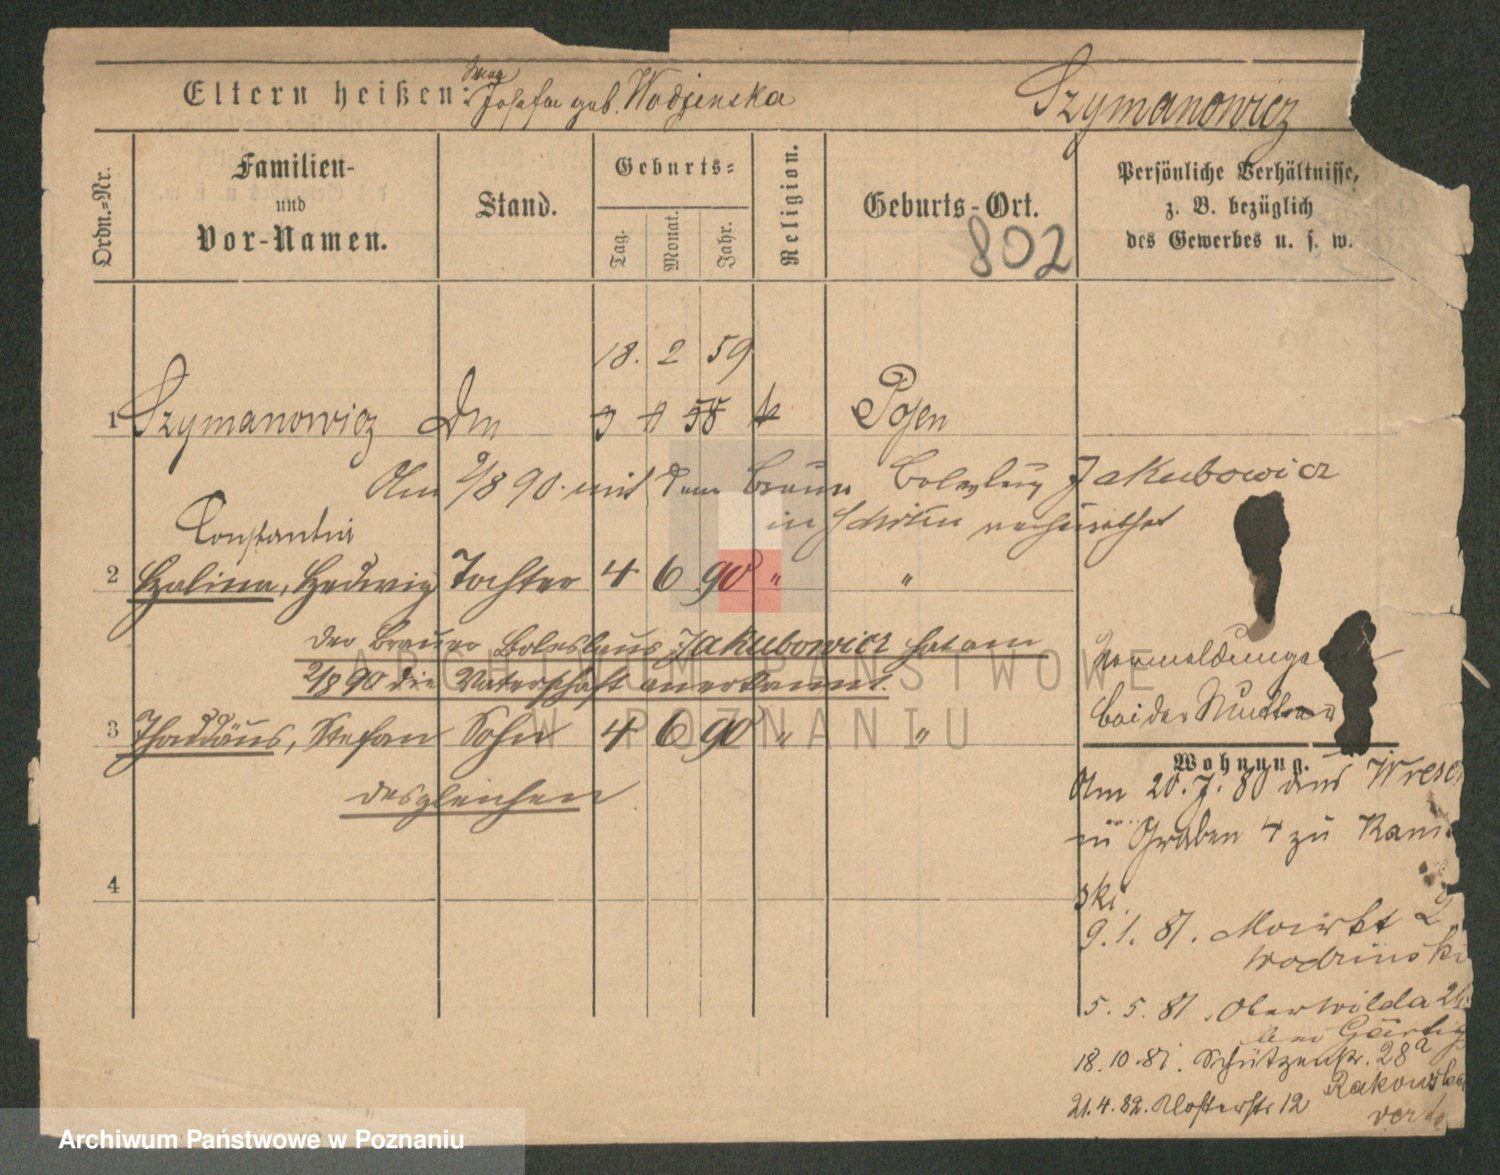 Eltern heißen: Josefa geb. Wodzinska Szymanowicz
Ordn.-Nr.
Familien-
und
Vor-Namen.
Stand.
Geburts-
Tag.
Monat.
Jahr.
Religion.
Geburts-Ort.
802
Persönliche Verhältnisse,
z. B. bezüglich
des Gewerbes u. s. w.
18. 2 59
1 Szymanowicz 58 k Posen
Am 2/8 90. mit dem Brauer Boleslaus Jakubowicz
in verheirathet
Constantia
2 Halina, Hedwig Tochter 4 6 90 " "
der Brauer Boleslaus Jakubowicz hat am
2/8 90 die Vaterschaft anerkannt.
3 Thaddäus, Stefan Sohn 4 6 90 " "
desgleichen
4
bei der Mutter
Wohnung.
Am 20. 7. 80 aus
Graben 4 zu Kamin
ski.
9. 1. 81. Markt
Wodzinski
5. 5. 81. Oberwilda
bei Gärtig
18. 10. 81. Schützenstr. 28a
Rakowska
21. 4. 82. Klosterstr 12
ARCHIWUM PAŃSTWOWE
W POZNANIU
Archiwum Państwowe w Poznaniu